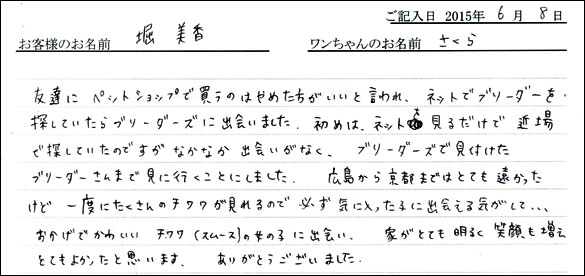 ご記入日 2015年 6月 8日
お客様のお名前 堀 美香 ワンちゃんのお名前 さくら
友達に ペットショップで買うのはやめた方がいいと言われ、ネットでブリーダーを
探していたらブリーダーズに出会いました。初めは、ネットを見るだけで 近場
で探していたのですがなかなか 出会いがなく、ブリーダーズで見付けた
ブリーダーさんまで見に行くことにしました。広島から京都まではとても遠かった
けど 一度にたくさんのチワワが見れるので 必ず気に入った子に出会える気がして...
おかげでかわいい チワワ(スムース)の女の子に出会い、家がとても明るく 笑顔も増え
とてもよかったと思います。ありがとうございました。